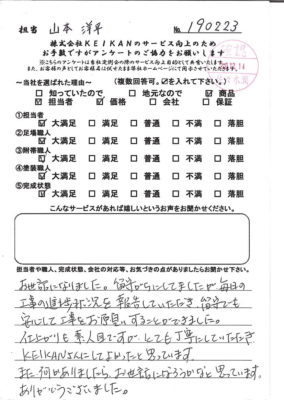 担当 山本 洋平 No. 190223
株式会社KEIKANのサービス向上のため
お手数ですがアンケートのご協力をお願いします
～当社を選ばれた理由～ (複数回答可。☑を入れて下さい。)
□ 知っていたので □ 地元なので ☑ 商品
☑ 担当者 ☑ 価格 □ 会社 □ 保証
①担当者
☑ 大満足 □ 満足 □ 普通 □ 不満 □ 落胆
②足場職人
☑ 大満足 □ 満足 □ 普通 □ 不満 □ 落胆
③附帯職人
☑ 大満足 □ 満足 □ 普通 □ 不満 □ 落胆
④塗装職人
☑ 大満足 □ 満足 □ 普通 □ 不満 □ 落胆
⑤完成状態
☑ 大満足 □ 満足 □ 普通 □ 不満 □ 落胆
こんなサービスがあれば嬉しいというお声をお聞かせください。
担当者や職人、完成状態、会社の対応等、お気づきの点がありましたらお聞かせください
お世話になりました。留守がちにしてましたが毎日の
工事の進捗状況を報告していただき 留守でも
安心して工事をお願いすることができました。
仕上がりも素人目ですが とても丁寧にしていただき
KEIKANさんにしてよかったと思っています。
また何かありましたら、お世話になろうかなと思っています。
ありがとうございました。